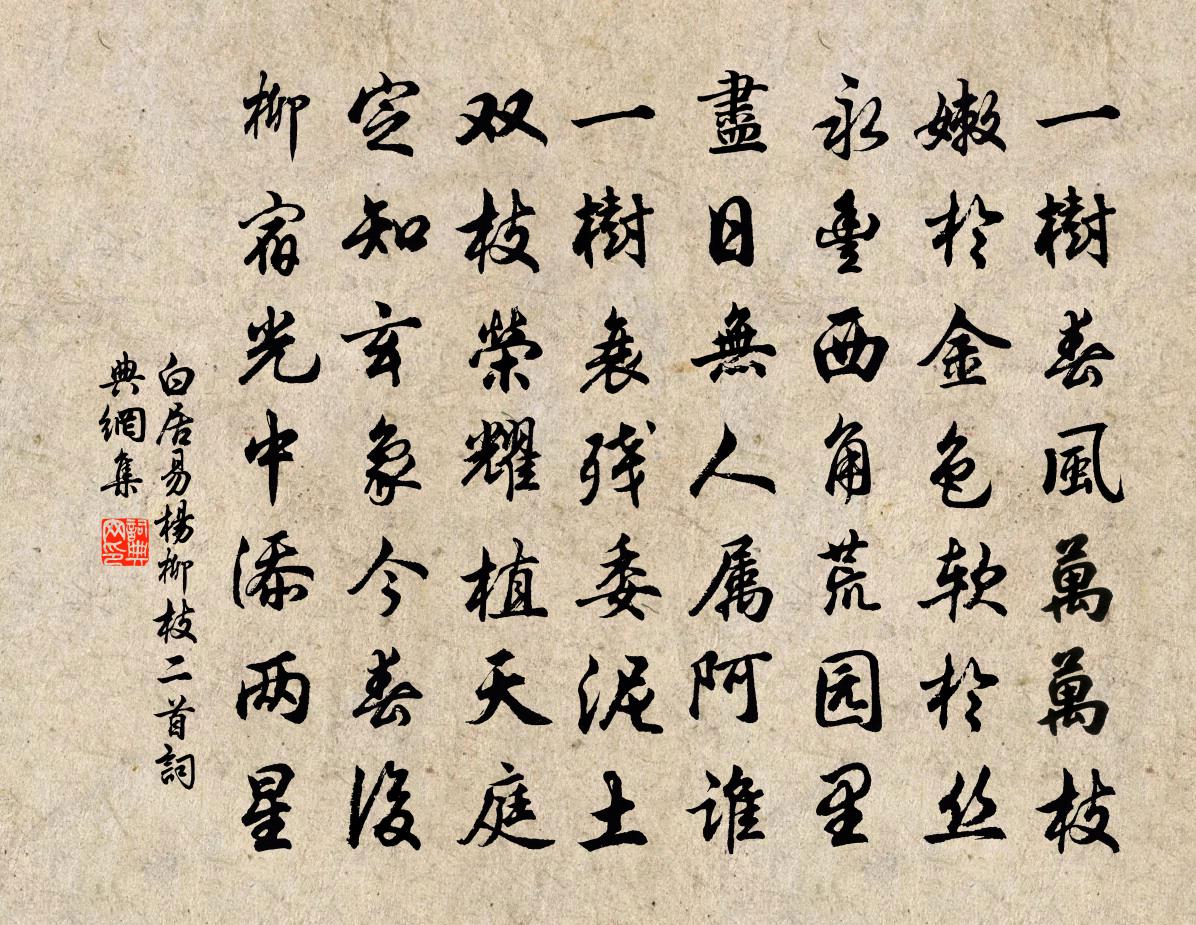 一樹春風萬萬枝
嫩於金色软於丝
永豊西角荒园里
盡日無人属阿谁
一樹衰残委泥土
双枝榮耀植天庭
定知玄象今春後
柳宿光中添两星
白居易楊柳枝二首詞
典網集
詞典
网印